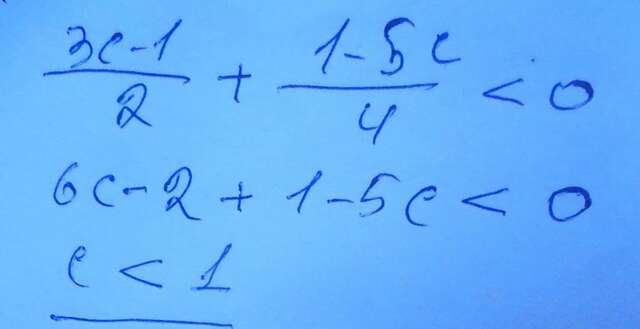 (3c-1)/2 + (1-5c)/4 < 0
6c-2+1-5c<0
c<1